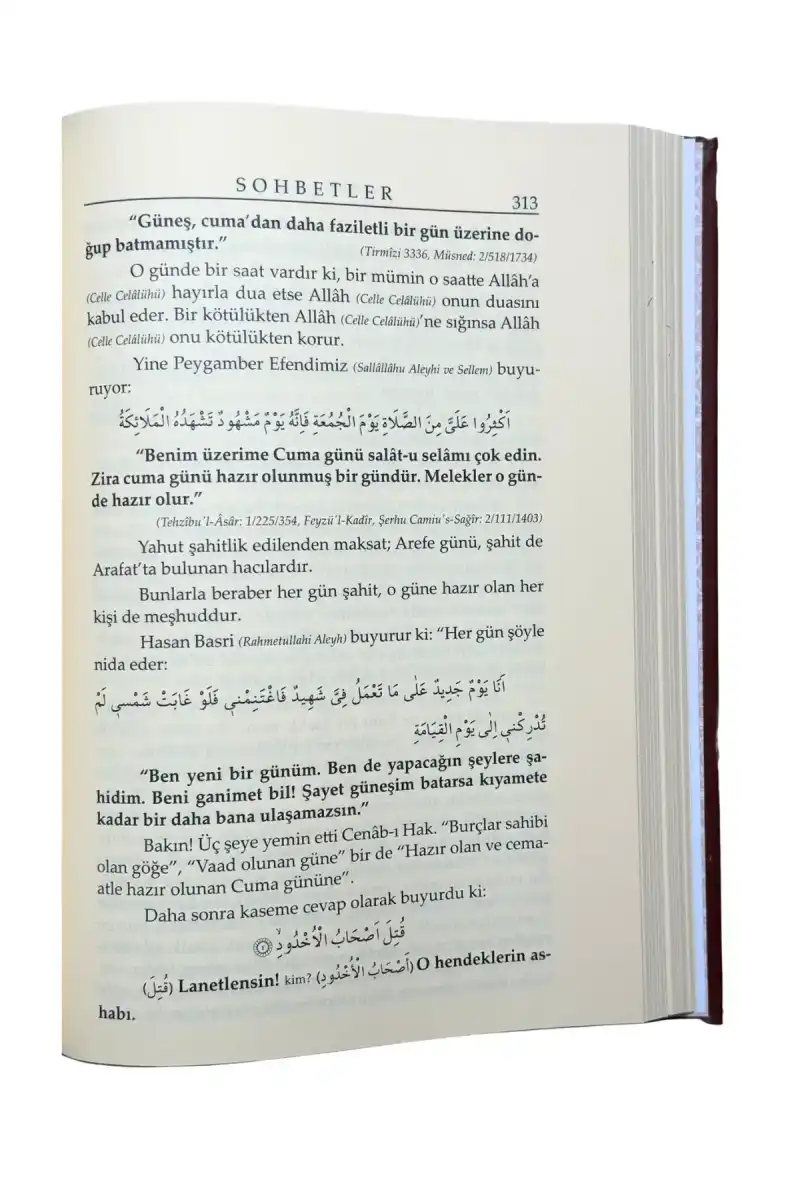 SOHBETLER
313
“Güneş, cuma’dan daha faziletli bir gün üzerine do-
ğup batmamıştır.” (Tirmîzi 3336, Müsned: 2/518/1734)
O günde bir saat vardır ki, bir mümin o saatte Allâh’a
(Celle Celâlühü) hayırla dua etse Allâh (Celle Celâlühü) onun duasını
kabul eder. Bir kötülükten Allâh (Celle Celâlühü)’ne sığınsa Allâh
(Celle Celâlühü) onu kötülükten korur.
Yine Peygamber Efendimiz (Sallâllâhu Aleyhi ve Sellem) buyu-
ruyor:
اَكْثِرُوا عَلَىَّ مِنَ الصَّلَاةِ يَوْمَ الْجُمُعَةِ فَاِنَّهُ يَوْمٌ مَشْهُودٌ تَشْهَدُهُ الْمَلَائِكَةُ
“Benim üzerime Cuma günü salât-u selâmı çok edin.
Zira cuma günü hazır olunmuş bir gündür. Melekler o gün-
de hazır olur.”
(Tehzîbu’l-Âsâr: 1/225/354, Feyzü’l-Kadîr, Şerhu Camiu’s-Sağîr: 2/111/1403)
Yahut şahitlik edilenden maksat; Arefe günü, şahit de
Arafat’ta bulunan hacılardır.
Bunlarla beraber her gün şahit, o güne hazır olan her
kişi de meşhuddur.
Hasan Basri (Rahmetullahi Aleyh) buyurur ki: “Her gün şöyle
nida eder:
اَنَا يَوْمٌ جَدِيدٌ عَلٰى مَا تَعْمَلُ فِىَّ شَهِيدٌ فَاغْتَنِمْنِى فَلَوْ غَابَتْ شَمْسِى لَمْ
تُدْرِكْنِى اِلٰى يَوْمِ الْقِيَامَةِ
“Ben yeni bir günüm. Ben de yapacağın şeylere şa-
hidim. Beni ganimet bil! Şayet güneşim batarsa kıyamete
kadar bir daha bana ulaşamazsın.”
Bakın! Üç şeye yemin etti Cenâb-ı Hak. “Burçlar sahibi
olan göğe”, “Vaad olunan güne” bir de “Hazır olan ve cema-
atle hazır olunan Cuma gününe”.
Daha sonra kaseme cevap olarak buyurdu ki:
قُتِلَ اَصْحَابُ الْاُخْدُودِۙ ﴿٤﴾
(قُتِلَ) Lanetlensin! kim? (أَصْحَابُ الْأُخْدُودِ) O hendeklerin as-
habı.